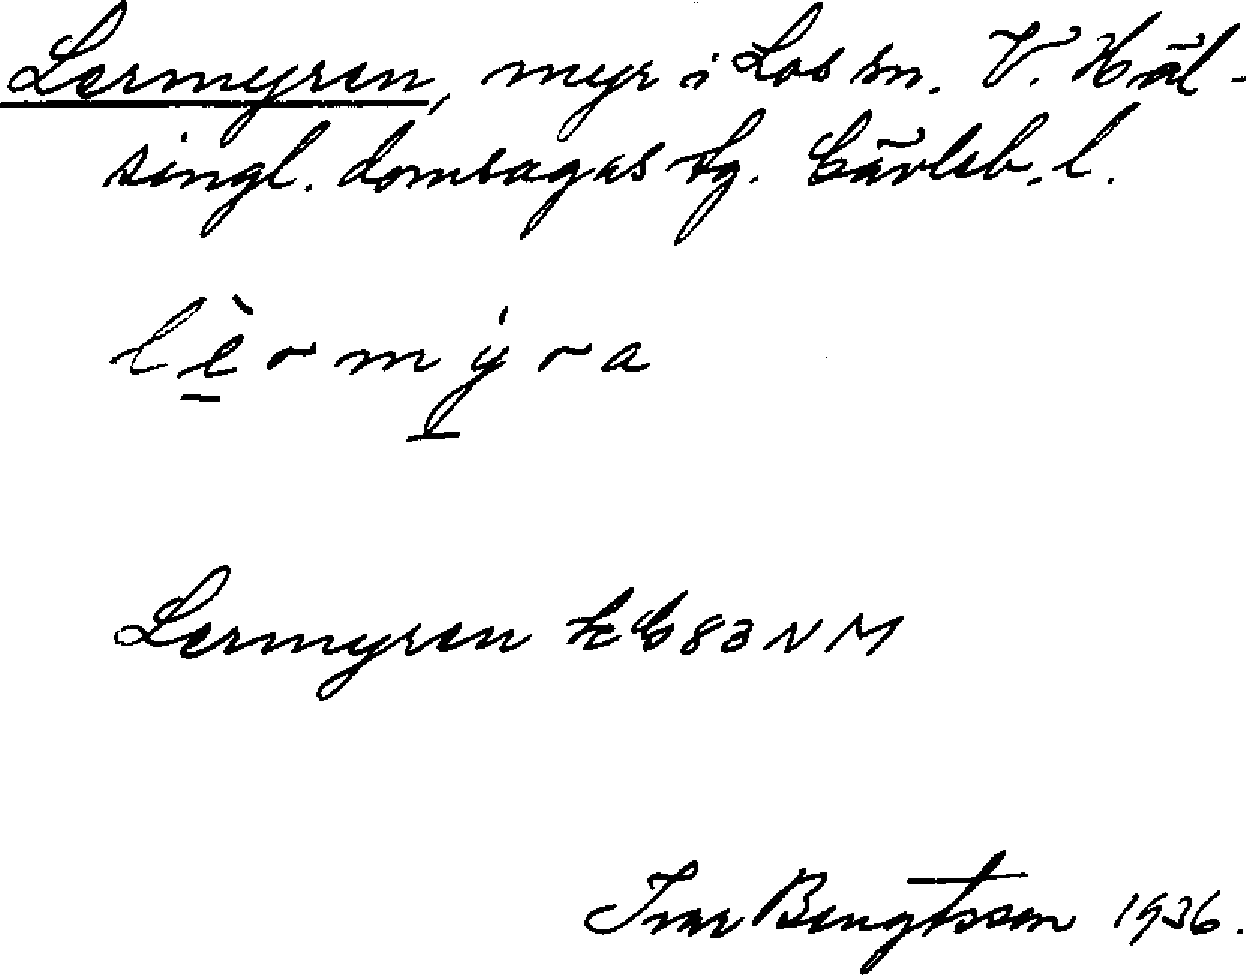 Lermyren, myr i Los sn. V. Häl-
singl. domsagas tg. Gävleb. l.
lèrmýra
Lermyren GG83NM
Ivar Bengtsson 1936.